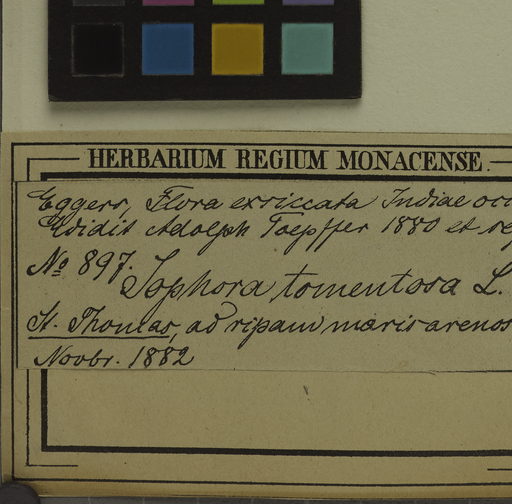 HERBARIUM REGIUM MONACENSE.
Eggers, Flora exsiccata Indiae occ
Edidit Adolph Toepffer 1880 et se
No 897.
Sophora tomentosa L.
St. Thomas, ad ripam maris arenos
Novbr. 1882